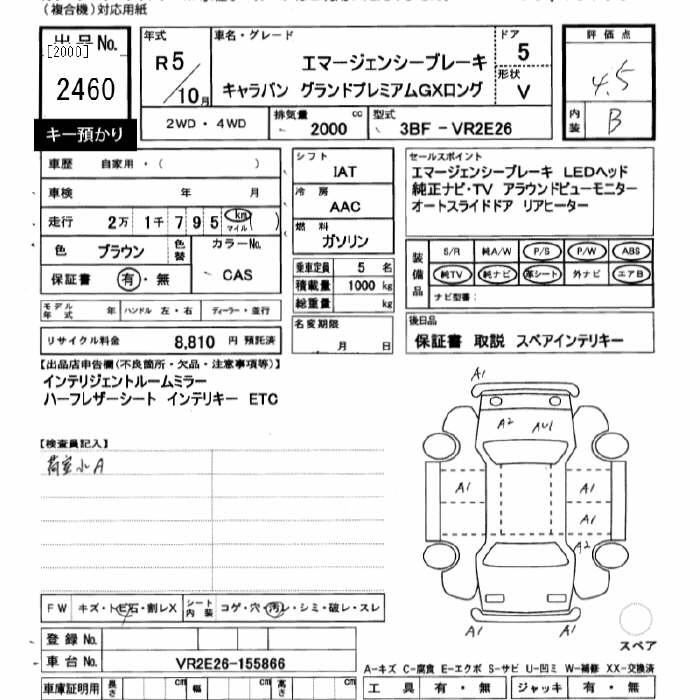 （複合機）対応用紙
出品No.
[2000]
2460
キー預かり
年式
R5/10月
車名・グレード
エマージェンシーブレーキ
キャラバン グランドプレミアムGXロング
ドア
5
形状
V
評価点
4.5
内装
B
2WD・4WD
排気量
2000 cc
型式
3BF-VR2E26
車歴 自家用・( )
車検 年 月
走行 2万 1千 7 9 5 km マイル ( )
色 ブラウン
色替
カラーNo.
CAS
保証書 有・無
モデル年式 年 ハンドル 左・右 ディーラー・並行
リサイクル料金 8,810 円 預託済
シフト
IAT
冷房
AAC
燃料
ガソリン
乗車定員 5 名
積載量 1000 kg
総重量 kg
名変期限
月 日
セールスポイント
エマージェンシーブレーキ LEDヘッド
純正ナビ・TV アラウンドビューモニター
オートスライドドア リアヒーター
装備品
S/R 純A/W P/S P/W ABS
純TV 純ナビ 革シート 外ナビ エアB
ナビ型番：
後日品
保証書 取説 スペアインテリキー
【出品店申告欄(不良箇所・欠品・注意事項等)】
インテリジェントルームミラー
ハーフレザーシート インテリキー ETC
【検査員記入】
荷室小A
A1
A2 AU1
A1 A1
A1
A2
A1
スペア
FW キズ・トビ石・割レX シート内装 コゲ・穴・汚レ・シミ・破レ・スレ
登録No.
車台No. VR2E26-155866
A-キズ C-腐食 E-エクボ S-サビ U-凹ミ W-補修 XX-交換済
車庫証明用 長さ cm 幅 cm 高さ cm
工具 有・無 ジャッキ 有・無